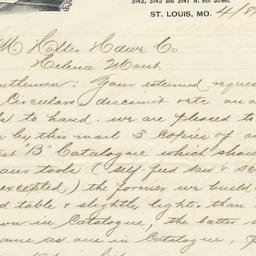 3143, 3145 and 3147 N. 9th Street.
ST. LOUIS, MO. 4/8
M Holter Hdwr Co
Helena Mont.
Gentlemen: Your esteemed reques
Circulars discount rate on a
to hand. we are pleased to
by this mail 3 copies of
"B" Catalogue which shou
our tools (self-feed saw &
excepted) the former we build
d table & slightly lighter than
own in Catalogue, the latter
ame as one in Catalogue,